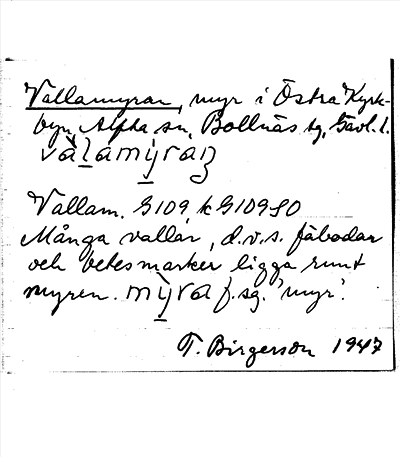 Vallamyran, myr i Östra Kyrk-
byn, Alfta sn, Bollnäs tg, Gävl. l.
vàlamyraṇ
Vallam. G109, k G109 SO
Många vallar, d.v.s. fäbodar
och betesmarker ligga runt
myren. mỳra f. sg. 'myr'.
T. Birgerson 1947